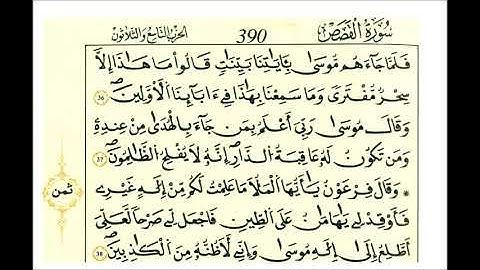 الحزب التاسع والثلاثون 390 سُورَةُ الْقَصَصِ
فَلَمَّا جَآءَهُم مُّوسَىٰ بِـَٔايَٰتِنَا بَيِّنَٰتٖ قَالُوا۟ مَا هَٰذَآ إِلَّا
سِحْرٞ مُّفْتَرٗى وَمَا سَمِعْنَا بِهَٰذَا فِےٓ ءَابَآئِنَا اَ۬لَاوَّلِينَۖ 36
وَقَالَ مُوسَىٰ رَبِّيَ أَعْلَمُ بِمَن جَآءَ بِالْهُدَىٰ مِنْ عِندِهِۦ
وَمَن تَكُونُ لَهُۥ عَٰقِبَةُ اُ۬لدّ۪ارِۖ إِنَّهُۥ لَا يُفْلِحُ اُ۬لظَّٰلِمُونَۖ 37
۞ وَقَالَ فِرْعَوْنُ يَٰٓأَيُّهَا اَ۬لْمَلَأُ مَا عَلِمْتُ لَكُم مِّنِ اِلَٰهٍ غَيْرِے
ثمن
فَأَوْقِدْ لِے يَٰهَٰمَٰنُ عَلَى اَ۬لطِّينِ فَاجْعَل لِّے صَرْحاٗ لَّعَلِّيَ
أَطَّلِعُ إِلَىٰٓ إِلَٰهِ مُوسَىٰ وَإِنِّے لَأَظُنُّهُۥ مِنَ اَ۬لْكَٰذِبِينَۖ 38